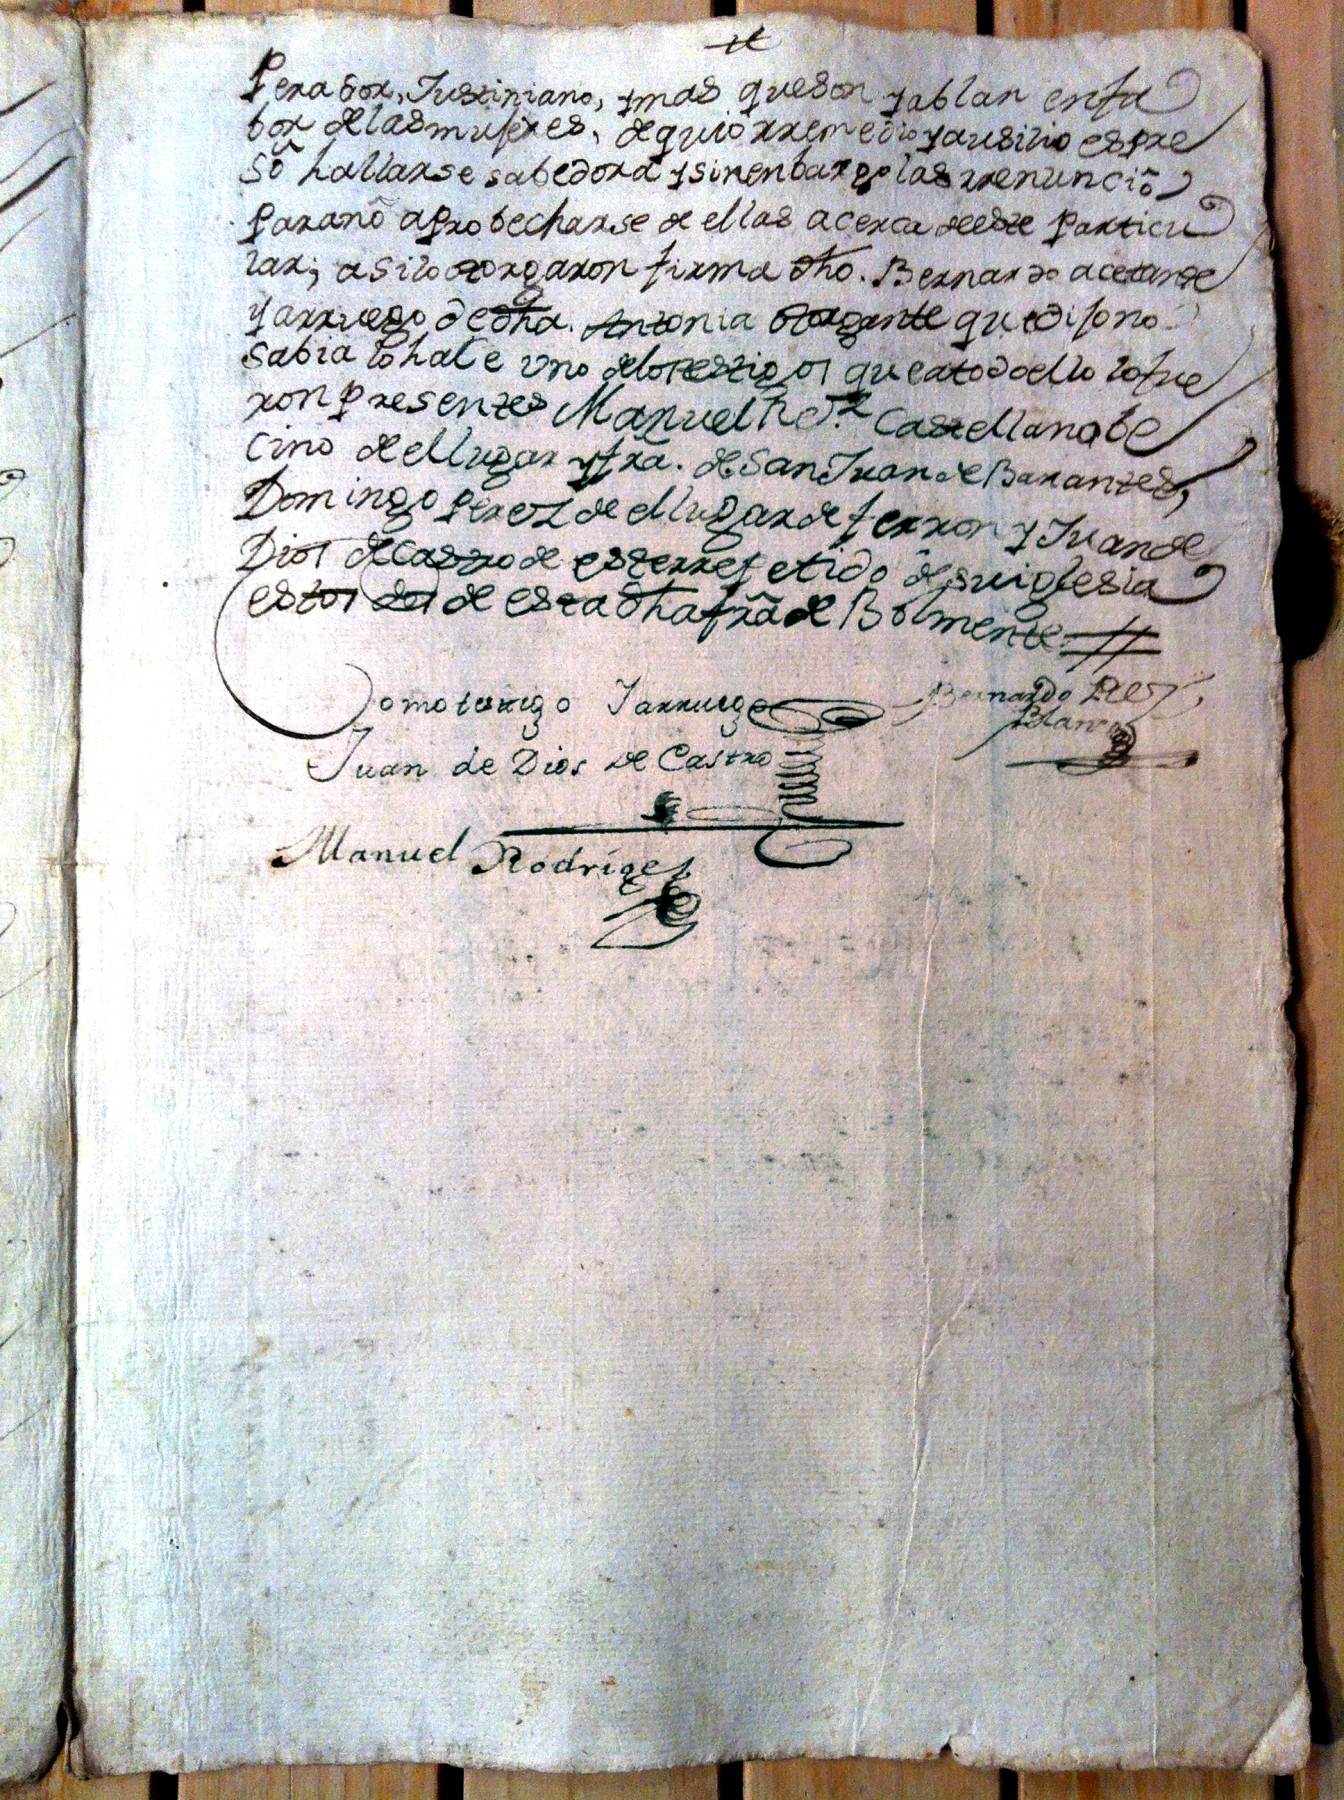 Perador, Justiniano, ymas queson yablan enfa
bor delasmujeres, dequio rremedio yausilio espre
sô hallarse sabedora ysinenbargo las rrenunciô
paranô aprobecharse de ellas acerca deeste particu
lar; asilo otorgaron firma dho. Bernardo acetante
yarruego dedha. Antonia otorgante quedijono
sabia lohace uno delostestigos queatodoello lofue
ron presentes Manuel Rdz. Castellano be
cino dellugar yfra. deSanJuan deBarantes,
Domingo perez dellugar de ferron y Juande
Dios decastro de este rrefetido desuiglesia
estos dos de esta dhafra de Bolmente
Comotestigo yarruego Bernardo Rez
Blanco
Juan de Dios de Castro
Manuel Rodriges